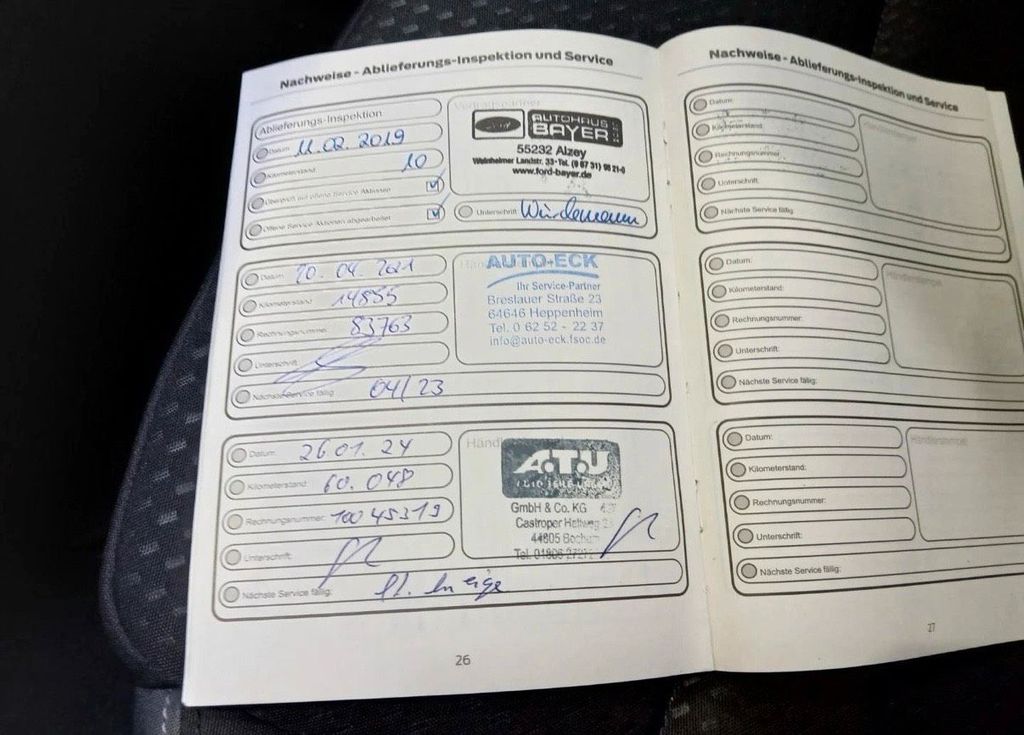 Nachweise - Ablieferungs-Inspektion und Service
Ablieferungs-Inspektion
Datum 11.02.2019
Kilometerstand 10
Überprüft auf offene Service Aktionen
Offene Service Aktionen abgearbeitet
Vertragspartner
AUTOHAUS
BAYER
55232 Alzey
Weinheimer Landstr. 33 · Tel. (0 67 31) 96 21-0
www.ford-bayer.de
Unterschrift
Datum 20. 04. 2021
Kilometerstand 14855
Rechnungsnummer: 83763
Unterschrift:
Nächste Service fällig 04/23
AUTO+ECK
Ihr Service-Partner
Breslauer Straße 23
64646 Heppenheim
Tel. 0 62 52 - 22 37
info@auto-eck.fsoc.de
Datum: 26 01. 24
Kilometerstand: 60.048
Rechnungsnummer: 10045319
Unterschrift:
Nächste Service fällig:
A.T.U
GmbH & Co. KG
Castroper
44805
Tel.
26
Nachweise - Ablieferungs-Inspektion und Service
Datum:
Kilometerstand:
Rechnungsnummer:
Unterschrift:
Nächste Service fällig:
Händlerstempel
Datum:
Kilometerstand:
Rechnungsnummer:
Unterschrift:
Nächste Service fällig:
Händlerstempel
Datum:
Kilometerstand:
Rechnungsnummer:
Unterschrift:
Nächste Service fällig:
Händlerstempel
27